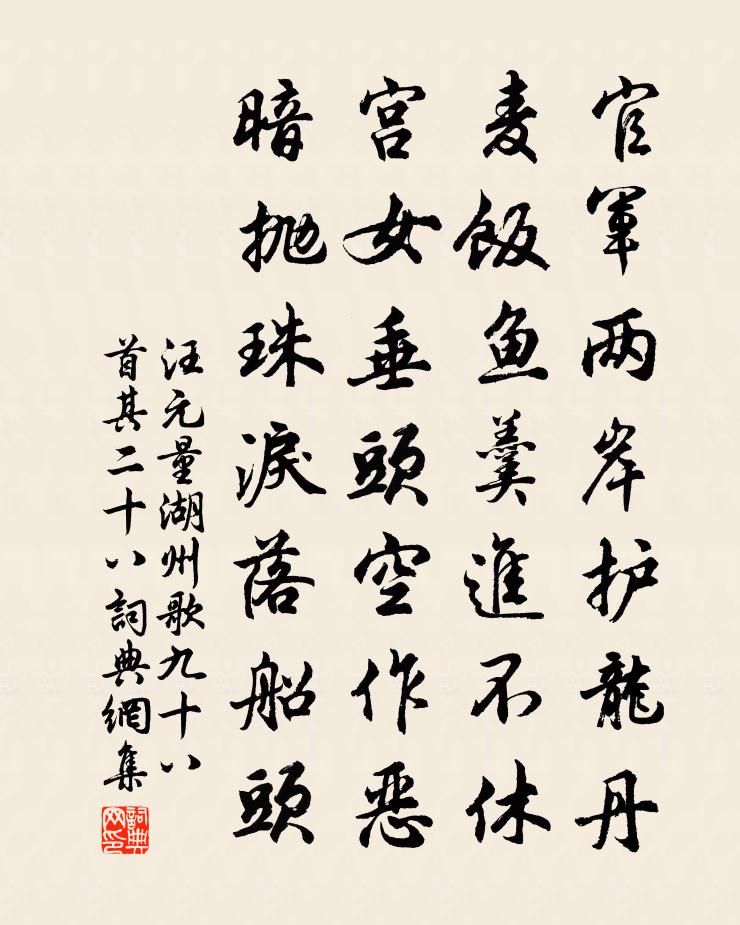 官軍两岸护龍丹
麦飯鱼羹進不休
宫女垂頭空作恶
暗抛珠淚落船頭
汪元量湖州歌九十八
首其二十八詞典網集
詞典
网印